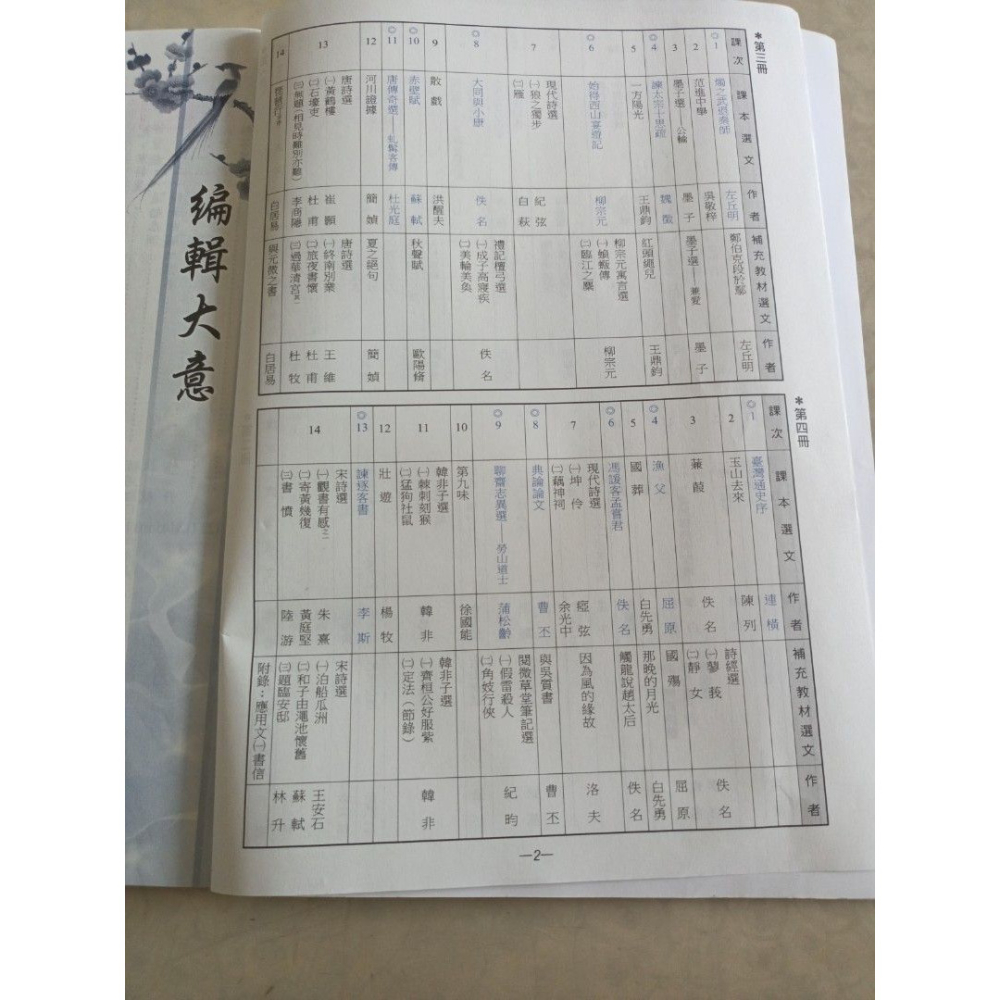 ＊第三冊
課次 課本選文 作者 補充教材選文 作者
◎1 燭之武退秦師 左丘明 鄭伯克段於鄢 左丘明
2 范進中舉 吳敬梓
3 墨子選——公輸 墨子 墨子選——兼愛 墨子
◎4 諫太宗十思疏 魏徵
5 一方陽光 王鼎鈞 紅頭繩兒 王鼎鈞
◎6 始得西山宴遊記 柳宗元 柳宗元寓言選 柳宗元
㈠蝜蝂傳
㈡臨江之麋
7 現代詩選
㈠狼之獨步 紀弦
㈡雁 白萩
◎8 大同與小康 佚名 禮記檀弓選 佚名
㈠成子高寢疾
㈡美輪美奐
9 散戲 洪醒夫
◎10 赤壁賦 蘇軾 秋聲賦 歐陽脩
◎11 唐傳奇選——虬髯客傳 杜光庭
12 河川證據 簡媜 夏之絕句 簡媜
13 唐詩選 唐詩選
㈠黃鶴樓 崔顥 ㈠終南別業 王維
㈡石壕吏 杜甫 ㈡旅夜書懷 杜甫
㈢無題（相見時難別亦難） 李商隱 ㈢過華清宮其一 杜牧
14 琵琶行并序 白居易 與元微之書 白居易
＊第四冊
課次 課本選文 作者 補充教材選文 作者
◎1 臺灣通史序 連橫
2 玉山去來 陳列
3 蒹葭 佚名 詩經選 佚名
㈠蓼莪
㈡靜女
◎4 漁父 屈原 國殤 屈原
5 國葬 白先勇 那晚的月光 白先勇
◎6 馮諼客孟嘗君 佚名 觸龍說趙太后 佚名
7 現代詩選 因為風的緣故 洛夫
㈠坤伶 瘂弦
㈡藕神祠 余光中
◎8 典論論文 曹丕 與吳質書 曹丕
◎9 聊齋志異選——勞山道士 蒲松齡 閱微草堂筆記選 紀昀
㈠假雷殺人
㈡角妓行俠
10 第九味 徐國能
11 韓非子選 韓非 韓非子選 韓非
㈠棘刺刻猴 ㈠齊桓公好服紫
㈡猛狗社鼠 ㈡定法（節錄）
12 壯遊 楊牧
◎13 諫逐客書 李斯
14 宋詩選 宋詩選
㈠觀書有感之一 朱熹 ㈠泊船瓜洲 王安石
㈡寄黃幾復 黃庭堅 ㈡和子由澠池懷舊 蘇軾
㈢書憤 陸游 ㈢題臨安邸 林升
附錄：應用文㈠書信
—2—
編輯大意